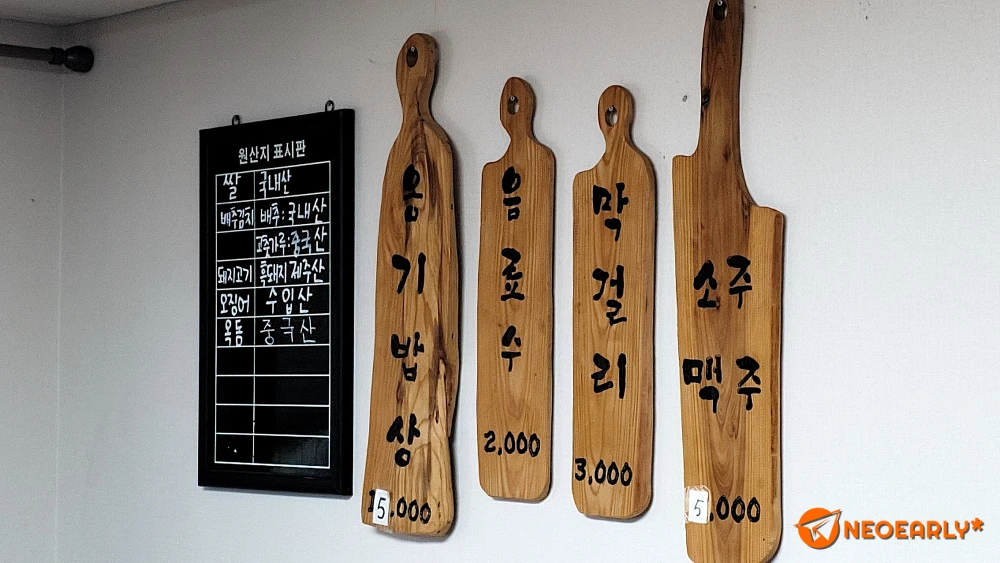 원산지 표시판
쌀 국내산
배추김치 배추:국내산
고춧가루:중국산
돼지고기 흑돼지 제주산
오징어 수입산
옥돔 중국산
옹기밥상
15,000
음료수
2,000
막걸리
3,000
소주
맥주
5,000
NEOEARLY*